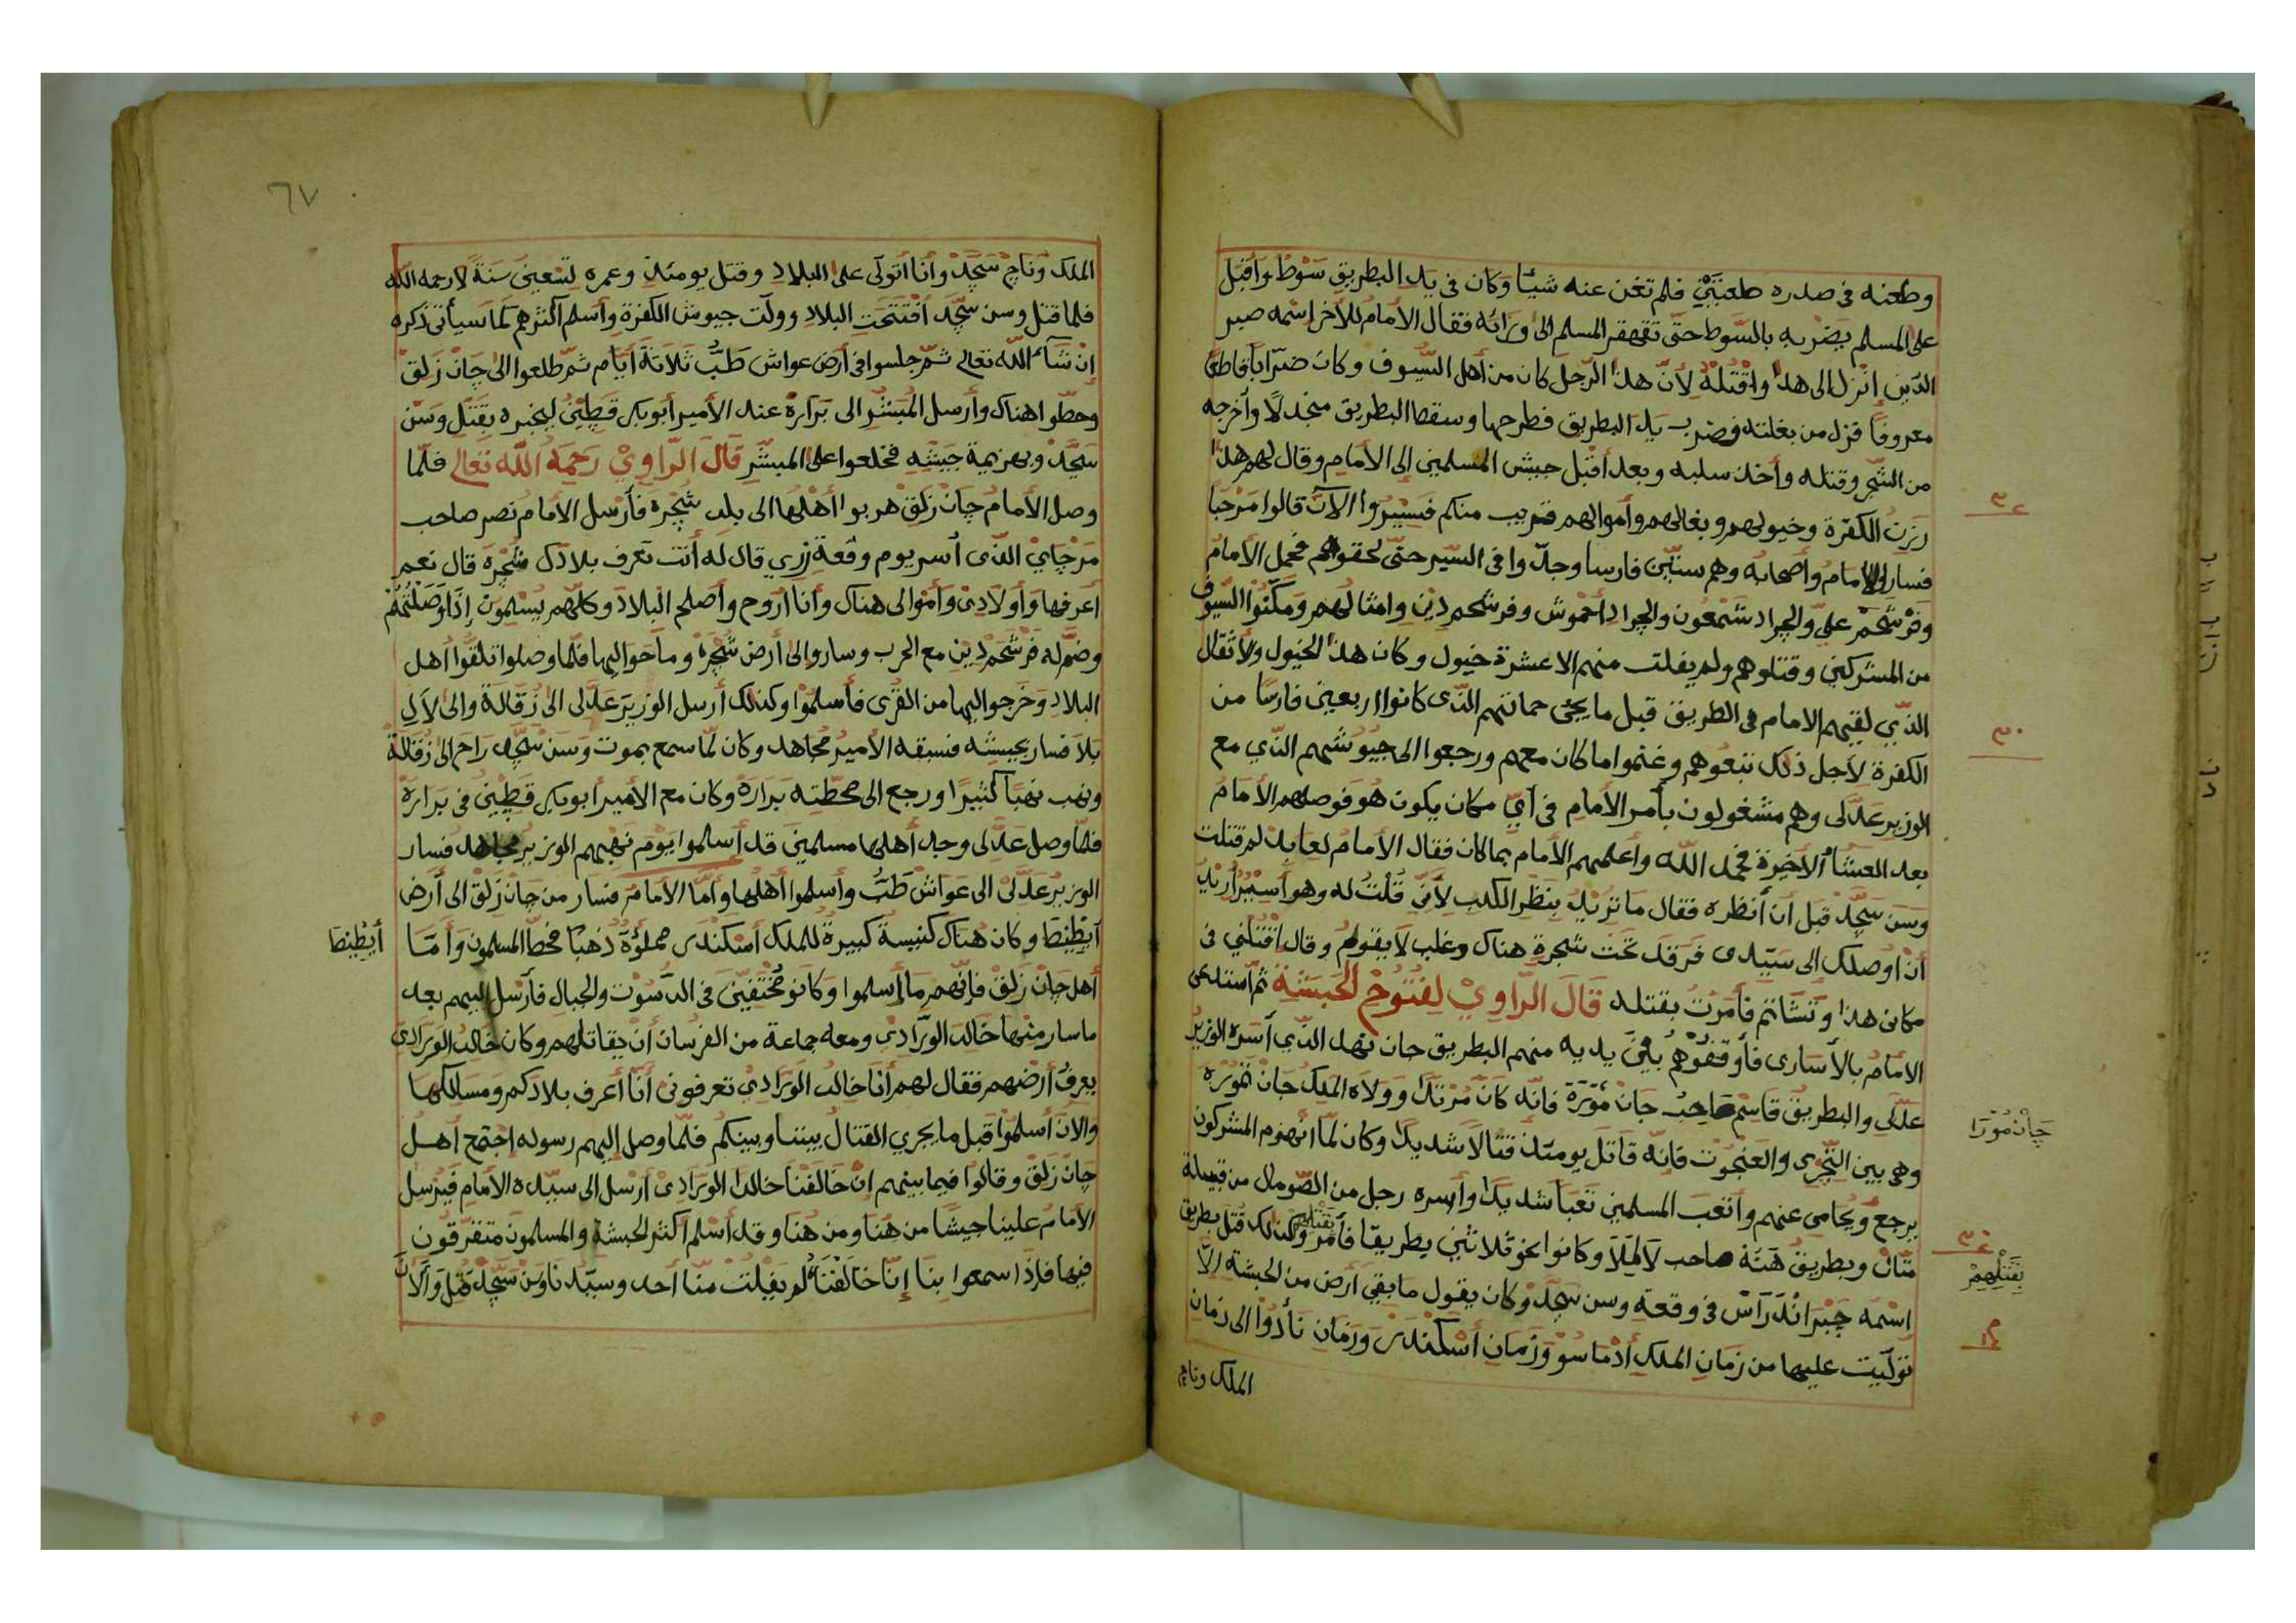 وطعنه في صدره طعنتين فلم تغن عنه شئًا وكان في يد البطريق سَوْط وأقبل
على المسلم يضربه بالسّوط حتّى تقهقر المسلم الى ورائه فقال الأمام للأخر إسمه صبر
الدّين إنزل الى هذا واقْتُلْهُ لأنّ هذا الرّجل كان من أهل السّيوف وكان ضرّابا قاطعًا
معروفًا فنزل من بغلته وضرب يد البطريق فطرحها وسقط البطريق منجدلًا وأخرجه
من الشّجر وقتله وأخذ سلبه وبعد أقبل جيش المسلمين إلى الأمام وقال لهم هذا
رَزَنُ الكفرة وخيولهم وبغالهم وأموالهم قريب منكم فسيروا الآن قالوا مَرْحَبًا
فسار الإمام وأصحابه وهم ستّين فارسا وجدّوا في السّير حتّى لحقوهم فحمل الأمام
وفَرْشَحَمْ علي والجراد شَمْعُون والجراد أحْمُوش وفرشحم دين وامثالهم ومكّنوا السّيوف
من المشركين وقتلوهم ولم يفلت منهم الا عشرة خيول وكان هذا الخيول والأثقال
الذّي لقيهم الامام في الطريق قبل ما يجئ حمانتهم الذّى كانوا اربعين فارسًا من
الكفرة لأجل ذلك تبعوهم وغنموا ما كان معهم ورجعوا الى جيوشهم الذّي مع
الوزير عَدَّلى وهم مشغولون بأمر الأمام في أيّ مكان يكون هو فوصلهم الأمام
بعد العشاء الأخيرة فحمد الله وأعلمهم الأمام بما كان فقال الأمام لعابد لم قتلت
وَسَن سَجَّد قبل أن أنظره فقال ما تريد بنظر الكلب لأنّي قُلْتُ له وهو أسير أريد
أن اوصلك الى سيّدى فرقد تحت شجرة هناك وغلب لا يقوم وقال اقتلني في
مكان هذا وتشاتم فأمرت بقتله قَالَ الرَّاوِيْ لِفُتُوْحِ الْحَبَشَةِ ثم أستدعى
الأمام بالأسارى فأوقفوْهُمْ بَيْنَ يديه منهم البطريق جان نهد الذّي أسره الوزير
علَّلى والبطريق قاسم صاحب جَانْ مُوْرَة فانّه كان مُرْتدًا وولاه الملك جَانْ مُوْرَه
وهى بين التّجرى والعنجوت فإنّه قاتل يومئذ قتالا شديدًا وكان لمّا انهزم المشركون
يرجع ويحامى عنهم وأتعب المسلمين تعبا شديدا وأسره رجل من الصّومال من قبيلة
متّان وبطريق هَنَة صاحب لَالِيَلا وكانوا نحو ثلاثين بطريقا فأمر بقتلهم وكذلك قتل بطريق
اسْمُه جَبْر انْدَرَآس في وقعة وسن سَجَّد وكان يقول ما بقي أرض من الحبشة الاّ
تولّيت عليها من زمان الملك أدْمَاسُو وَزَمان أَسْكَنْدَر وزمان نَأُدْوا الى زمان
الملك وناج
جَانْ مُوْرَا
بِقَتْلِهِمْ
٦٧
الملك وَنَاج سَجَّدْ وأنا أتولّى على البلاد وقتل يومئذ وعمره تسْعين سَنَةً لا رحمه الله
فلمّا قتل وسن سَجَّد أفْتَتَحَتِ البلاد وولّت جيوش الكفرة وأسلم أكثرهم كما سيأتى ذكره
إن شآء الله تعالى ثمّ جلسوا في أرض عواش طَبُ ثلاثة أيّام ثمّ طلعوا الى جَانْ زَلَقْ
وحطّوا هناك وأرسل المبَشّر الى بَرَارَة عند الأمير أبوبكر قَطِيْن ليخبره بقتل وسَن
سَجَّد وبهزيمة جيشه فخلعوا على المبَشّر قَالَ الرَّاوِيْ رَحِمَهُ اللّٰه تَعَالى فلمّا
وصل الأمام جَانْ زَلَقْ هربوا أهلها الى بلد شُجْرَه فأرسل الأمام نصر صاحب
مَرْجَايْ الذّى أسر يوم وقعة زَرِي قال له أنت تعرف بلادك شُجْرَه قال نعم
أعرفها وأولادى وأمّوا لى هناك وأنا أروح وأصلح البلاد وكلّهم يسلمون إذا وَصَلْتُهُمْ
وضمّ له فَرَشَحَمْ دِيْن مع الحرب وساروا الى أرض شُجْرَه وما حواليها فلمّا وصلوا تلقّوا أهل
البلاد وخرجوا اليها من القُرى فأسلموا وكذلك أرسل الوزير عَدّلى الى زُقَالَة والى لاَلِ
بلا فسار بجيشه فسبقه الأمير مُجَاهد وكان لمّا سمع بموت وسَن سَجَّد راح الى زُقَالَة
ونهب نهبًا كثيرًا ورجع الى محطّته بَرَارَة وكان مع الأمير أبوبكر قَطِيْن في برارة
فلمّا وصل عَدّلى وجد أهلها مسلمين قد أسلموا يوم نهبهم الوزير مجاهد فسار
الوزير عَدّلى الى عَوَاش طَبُ وأسلموا أهلها وأمّا الأمام فسار من جَانْ زَلَقْ الى أرض
أيَظِيْطَا وكان هناك كنيسة كبيرة للملك أسْكَنْدَر مملؤة ذهبًا فحطّ المسلمون وأمّا
أيَظِيْطَا
أهل جَانْ زَلَقْ فإنّهم ما أسلموا وكانو مختفين في الدّسوت والجبال فأرسل إليهم بعد
ما سار منها خَالد الورَادِي ومعه جماعة من الفرسان أن يقاتلهم وكان خالد الورَادِيْ
يعرف أرضهم فقال لهم أنا خالد الورَادِيْ تعرفونى أنا أعرف بلادكم ومسالكها
والآن أسلموا قبل ما يجري القتال بيننا وبينكم فلمّا وصل إليهم رسوله إجتمع أهل
جَانْ زَلَقْ وقالوا فيما بينهم انْ خَالَفْنَا خالد الورَادِىْ أرسل الى سيّده الأمام فيرسل
الأمام علينا جيشا من هُنَا ومن هُنَا وقد أسلم أكثر الحبشة والمسلمون متفرّقون
فيها فإذا سمعوا بنا إنّا خَالَفْنَا لم يفلت منّا أحد وسيّدنا وَسَن سَجَّد قُتِلَ وَالْآنَ